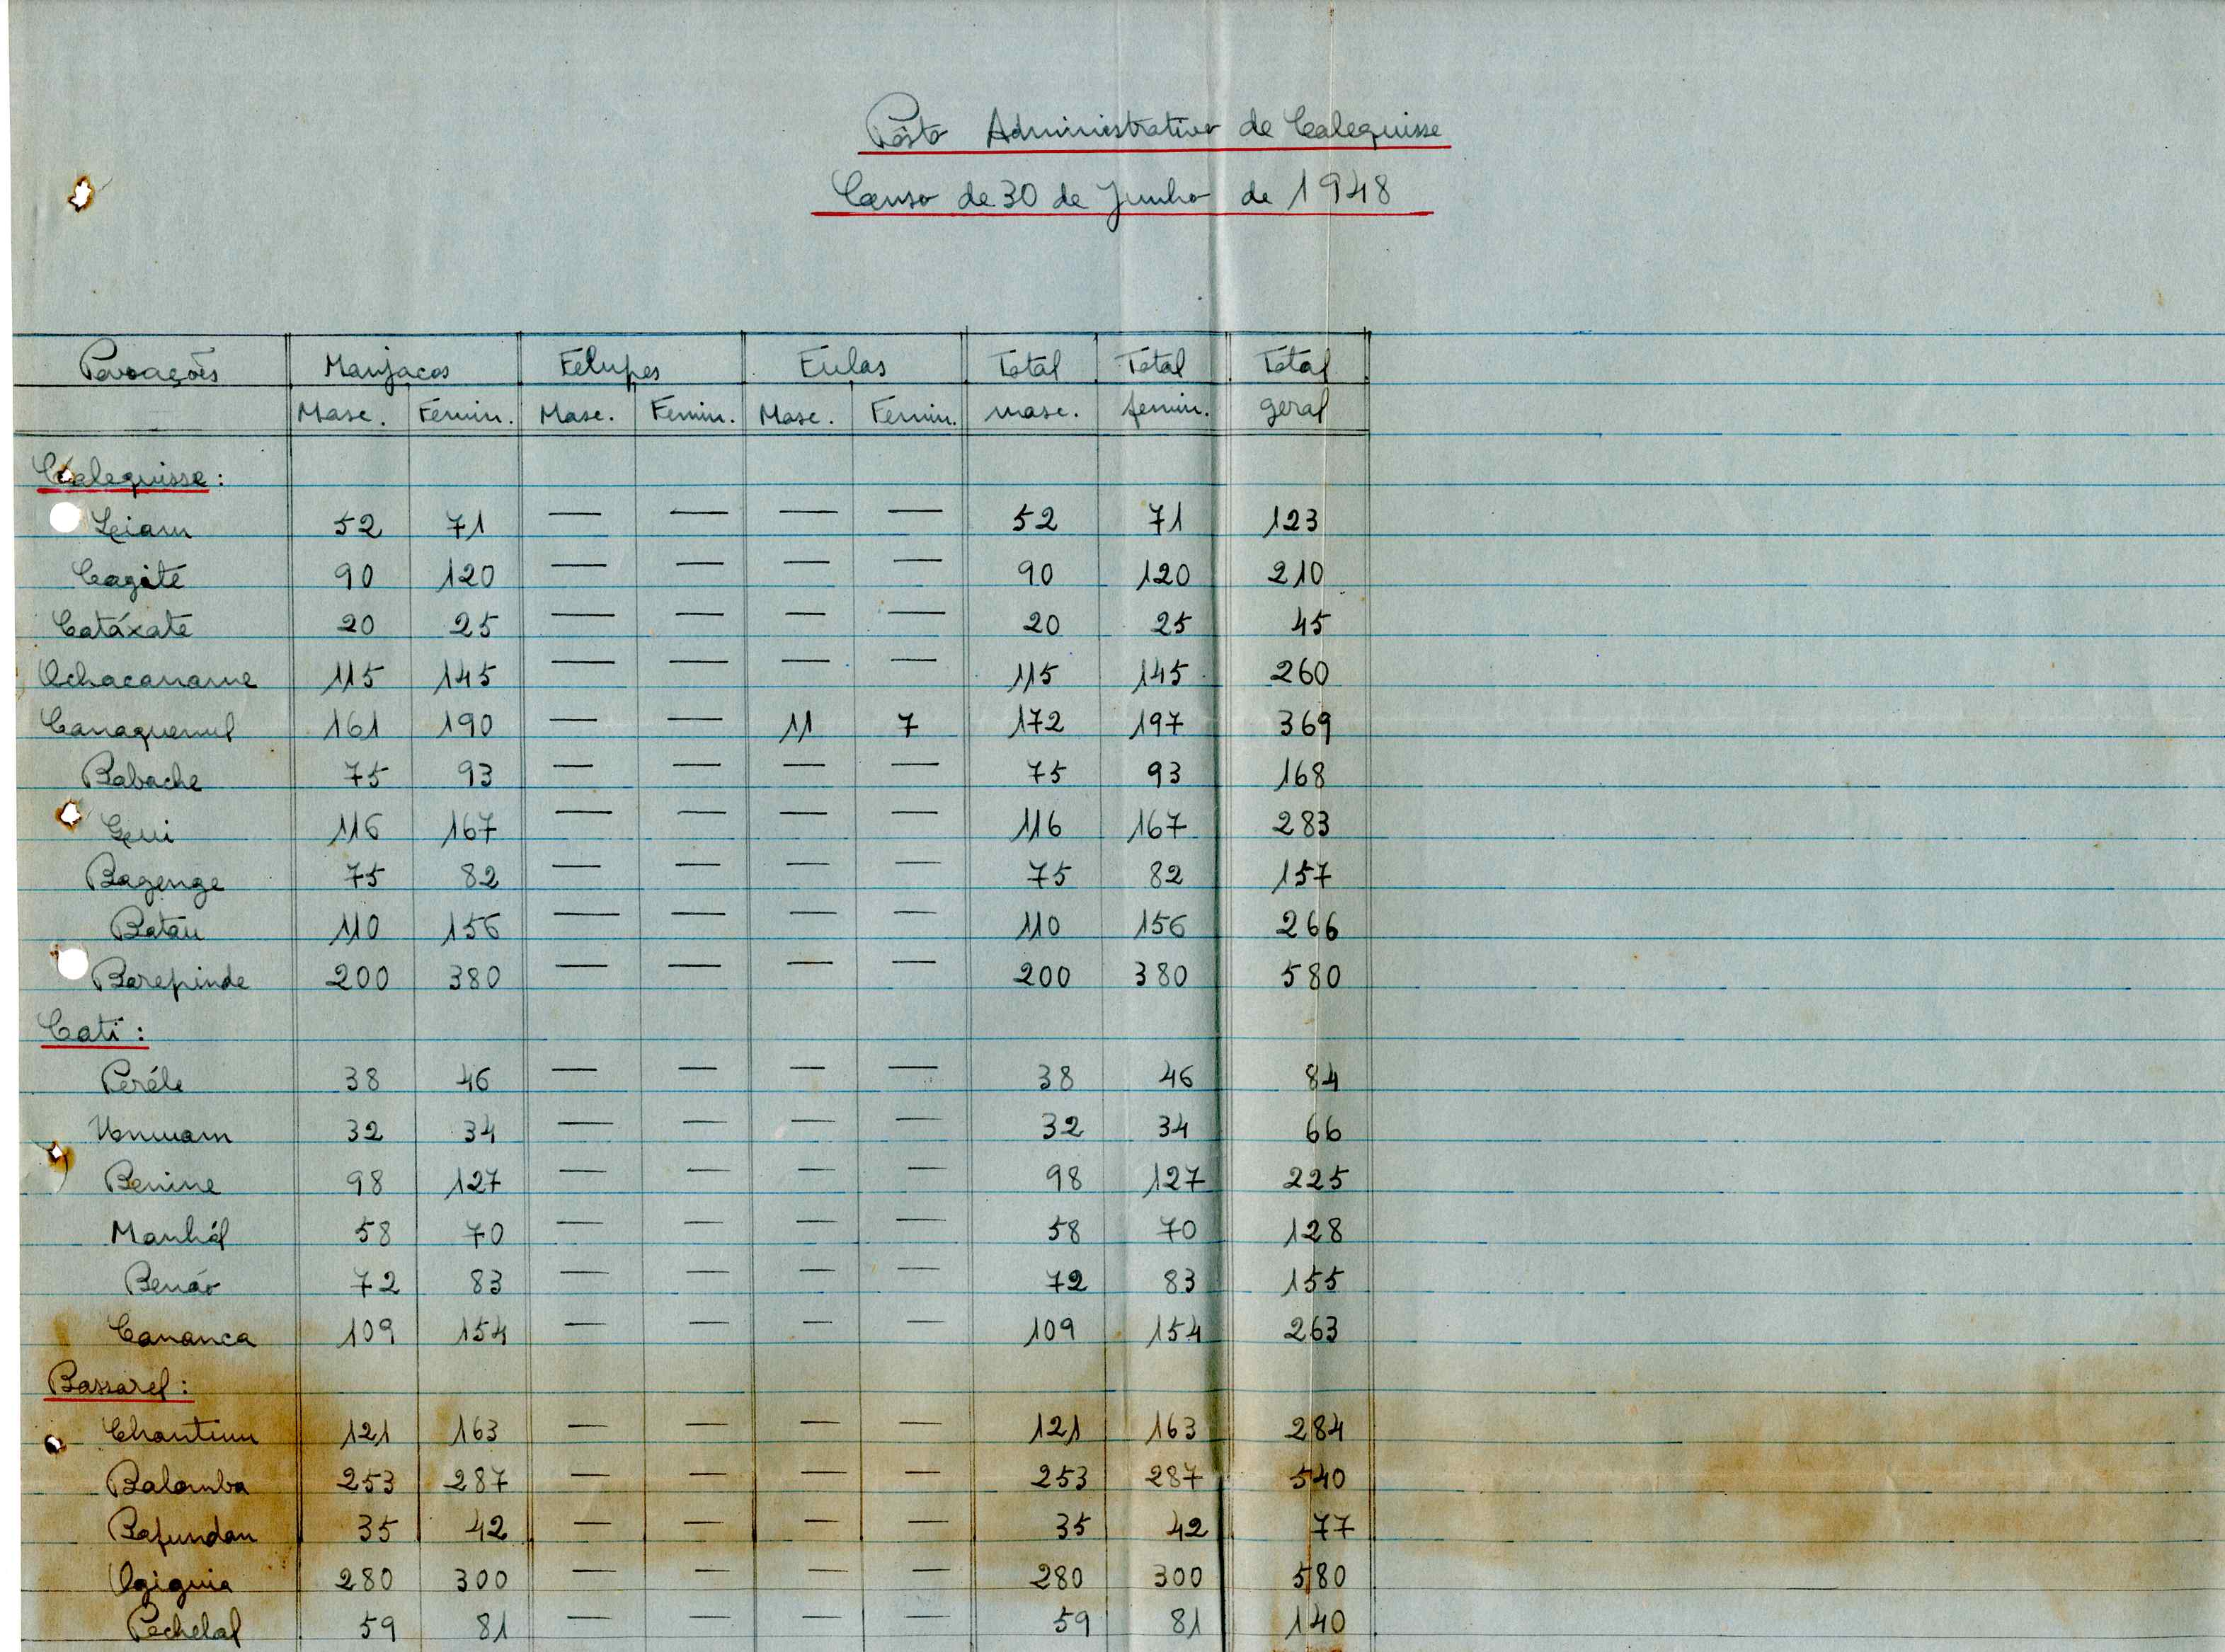 Pôsto Administrativo de Calequisse
Censo de 30 de Junho de 1948
Povoações Manjacos Felupes Fulas Total Total Total
Masc. Femin. Masc. Femin. Masc. Femin. masc. femin. geral
Calequisse:
Leiam 52 71 — — — — 52 71 123
Cagité 90 120 — — — — 90 120 210
Catáxate 20 25 — — — — 20 25 45
Ochacaname 115 145 — — — — 115 145 260
Canaquenul 161 190 — — 11 7 172 197 369
Babache 75 93 — — — — 75 93 168
116 167 — — — — 116 167 283
Bagenge 75 82 — — — — 75 82 157
Batau 110 156 — — — — 110 156 266
Barepinde 200 380 — — — — 200 380 580
Cati:
Peréle 38 46 — — — — 38 46 84
32 34 — — — — 32 34 66
Benine 98 127 — — — — 98 127 225
Manhól 58 70 — — — — 58 70 128
Benáo 72 83 — — — — 72 83 155
Cananca 109 154 — — — — 109 154 263
Bassarel:
Chantium 121 163 — — — — 121 163 284
Balomba 253 287 — — — — 253 287 540
Bafundan 35 42 — — — — 35 42 77
Ogiguia 280 300 — — — — 280 300 580
Pechelal 59 81 — — — — 59 81 140